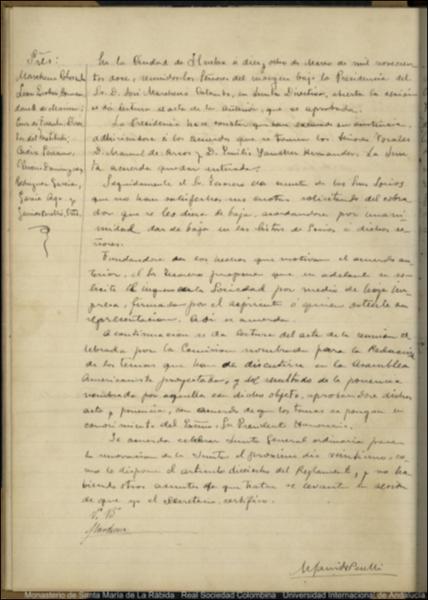 Sres:
Marchena Colombo
En la Ciudad de Huelva a diez y ocho de Marzo de mil novecien
tos doce, reunidos los Señores del margen bajo la Presidencia del
Sr. D. José Marchena Colombo, en Junta Directiva, abierta la sesión
se dá lectura al acta de la anterior, que es aprobada.
La Presidencia hace constar que han
adhiriéndose á los acuerdos que se tomen los Señores Vocales
D. Manuel de y D. Emilio Hernandez. La Jun
ta acuerda quedar enterada.
Seguidamente el Sr. Tesorero da cuenta de los Sres Socios
que no han satisfecho sus cuotas solicitando del cobra
dor que se les diera de baja, acordandose por unani
midad dar de baja en las listas de Socios á dichos se
ñores.
Fundandose en los hechos que motivan el acuerdo an
terior, el Sr. Tesorero propone que en adelante se so
licite el ingreso en la Sociedad por medio de hoja im
presa, firmada por el aspirante ó quien ostente su
representacion. Asi se acuerda.
A continuacion se da lectura del acta de la reunion ce
lebrada por la Comision nombrada para la Redaccion
de los temas que han de discutirse en la Asamblea
Americanista proyectada, y del resultado de la ponencia
nombrada por aquella con dicho objeto, aprobandose dichos
acta y ponencia, con acuerdo de que los temas se pongan en
conocimiento del Excmo. Sr. Presidente Honorario.
Se acuerda celebrar Junta General ordinaria para
la renovacion de la Junta el proximo dia veintiuno, co
mo lo dispone el articulo dieciocho del Reglamento, y no ha
biendo otros asuntos de que tratar se levantó la sesion
de que yo el Secretario, certifico.
Cónsul
del Instituto,
Dominguez,
Rodriguez Garcia,
Garcia y
V.º B.º
Marchena
Monasterio de Santa María de La Rábida · Real Sociedad Colombina · Universidad Internacional de Andalucía